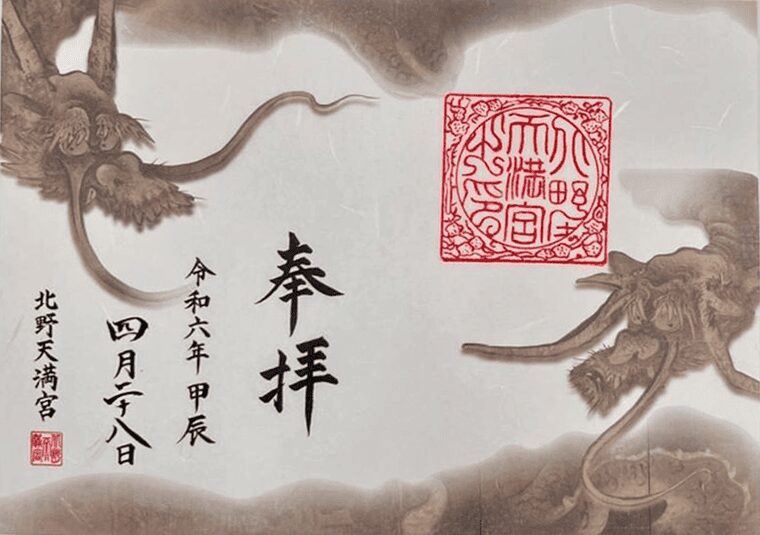 北野
天満宮
之印
奉拝
令和六年 甲辰
四月二十八日
北野天満宮